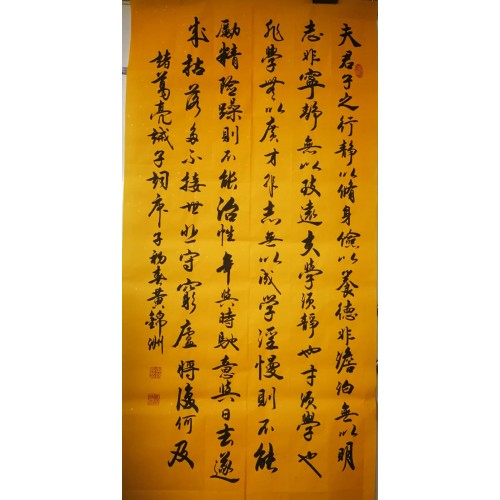 夫君子之行静以脩身儉以養德非澹泊無以明
志非寧静無以致遠夫學須静也才須學也
非學無以廣才非志無以成学淫慢則不能
勵精险躁則不能治性年與時馳意與日去遂
成枯落多不接世悲守窮廬將復何及
諸葛亮誡子詞庚子初春黄錦洲